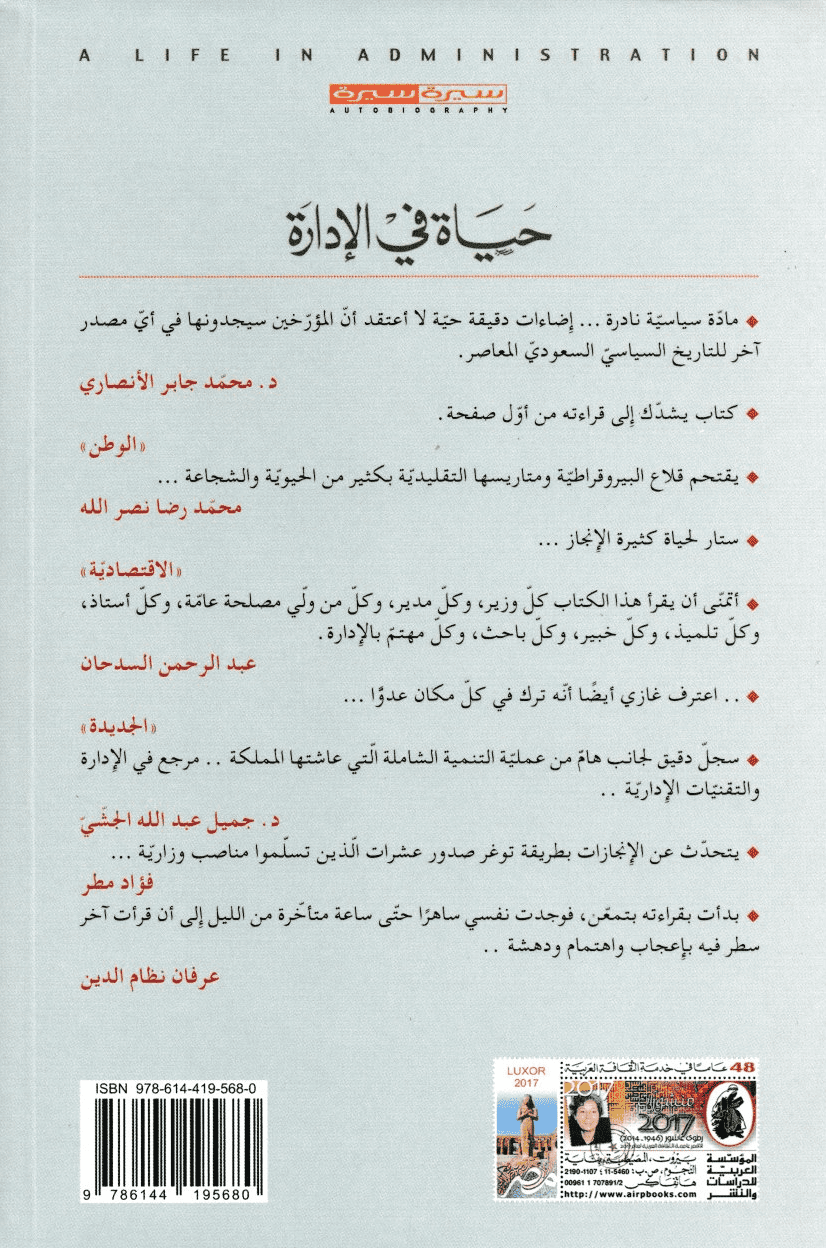 A LIFE IN ADMINISTRATION
سيرة سيرة
AUTOBIOGRAPHY
حَيَاة في الإدارَة
مادّة سياسيّة نادرة ... إضاءات دقيقة حيّة لا أعتقد أنّ المؤرّخين سيجدونها في أيّ مصدر
آخر للتاريخ السياسيّ السعوديّ المعاصر.
د. محمّد جابر الأنصاري
كتاب يشدّك إلى قراءته من أوّل صفحة.
«الوطن»
يقتحم قلاع البيروقراطيّة ومتاريسها التقليديّة بكثير من الحيويّة والشجاعة ...
محمّد رضا نصر الله
ستار لحياة كثيرة الإنجاز ...
«الاقتصاديّة»
أتمنّى أن يقرأ هذا الكتاب كلّ وزير، وكلّ مدير، وكلّ من ولّي مصلحة عامّة، وكلّ أستاذ،
وكلّ تلميذ، وكلّ خبير، وكلّ باحث، وكلّ مهتمّ بالإدارة.
عبد الرحمن السدحان
.. اعترف غازي أيضًا أنّه ترك في كلّ مكان عدوًّا ...
«الجديدة»
سجلّ دقيق لجانب هامّ من عمليّة التنمية الشاملة الّتي عاشتها المملكة .. مرجع في الإدارة
والتقنيّات الإداريّة ..
د. جميل عبد الله الجشّيّ
يتحدّث عن الإنجازات بطريقة توغر صدور عشرات الّذين تسلّموا مناصب وزاريّة ...
فؤاد مطر
بدأت بقراءته بتمعّن، فوجدت نفسي ساهرًا حتّى ساعة متأخّرة من الليل إلى أن قرأت آخر
سطر فيه بإعجاب واهتمام ودهشة ..
عرفان نظام الدين
ISBN 978-614-419-568-0
9 786144 195680
48 عاما في خدمة الثقافة العربية
LUXOR
2017
2017
2017
رضوى عاشور (1946-2014)
مصر
المؤسسة
العربية
للدراسات
والنشر
بيروت، المصيطبة، بناية
النجوم، ص.ب: 11-5460 ؛ 1107-2190
هاتفاكس 00961 1 707891/2
http://www.airpbooks.com